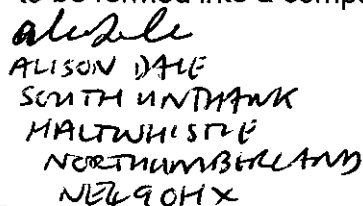 to be formed into a comp
ALISON DALE
SOUTH UNTHANK
HALTWHISTLE
NORTHUMBERLAND
NE49 0HX